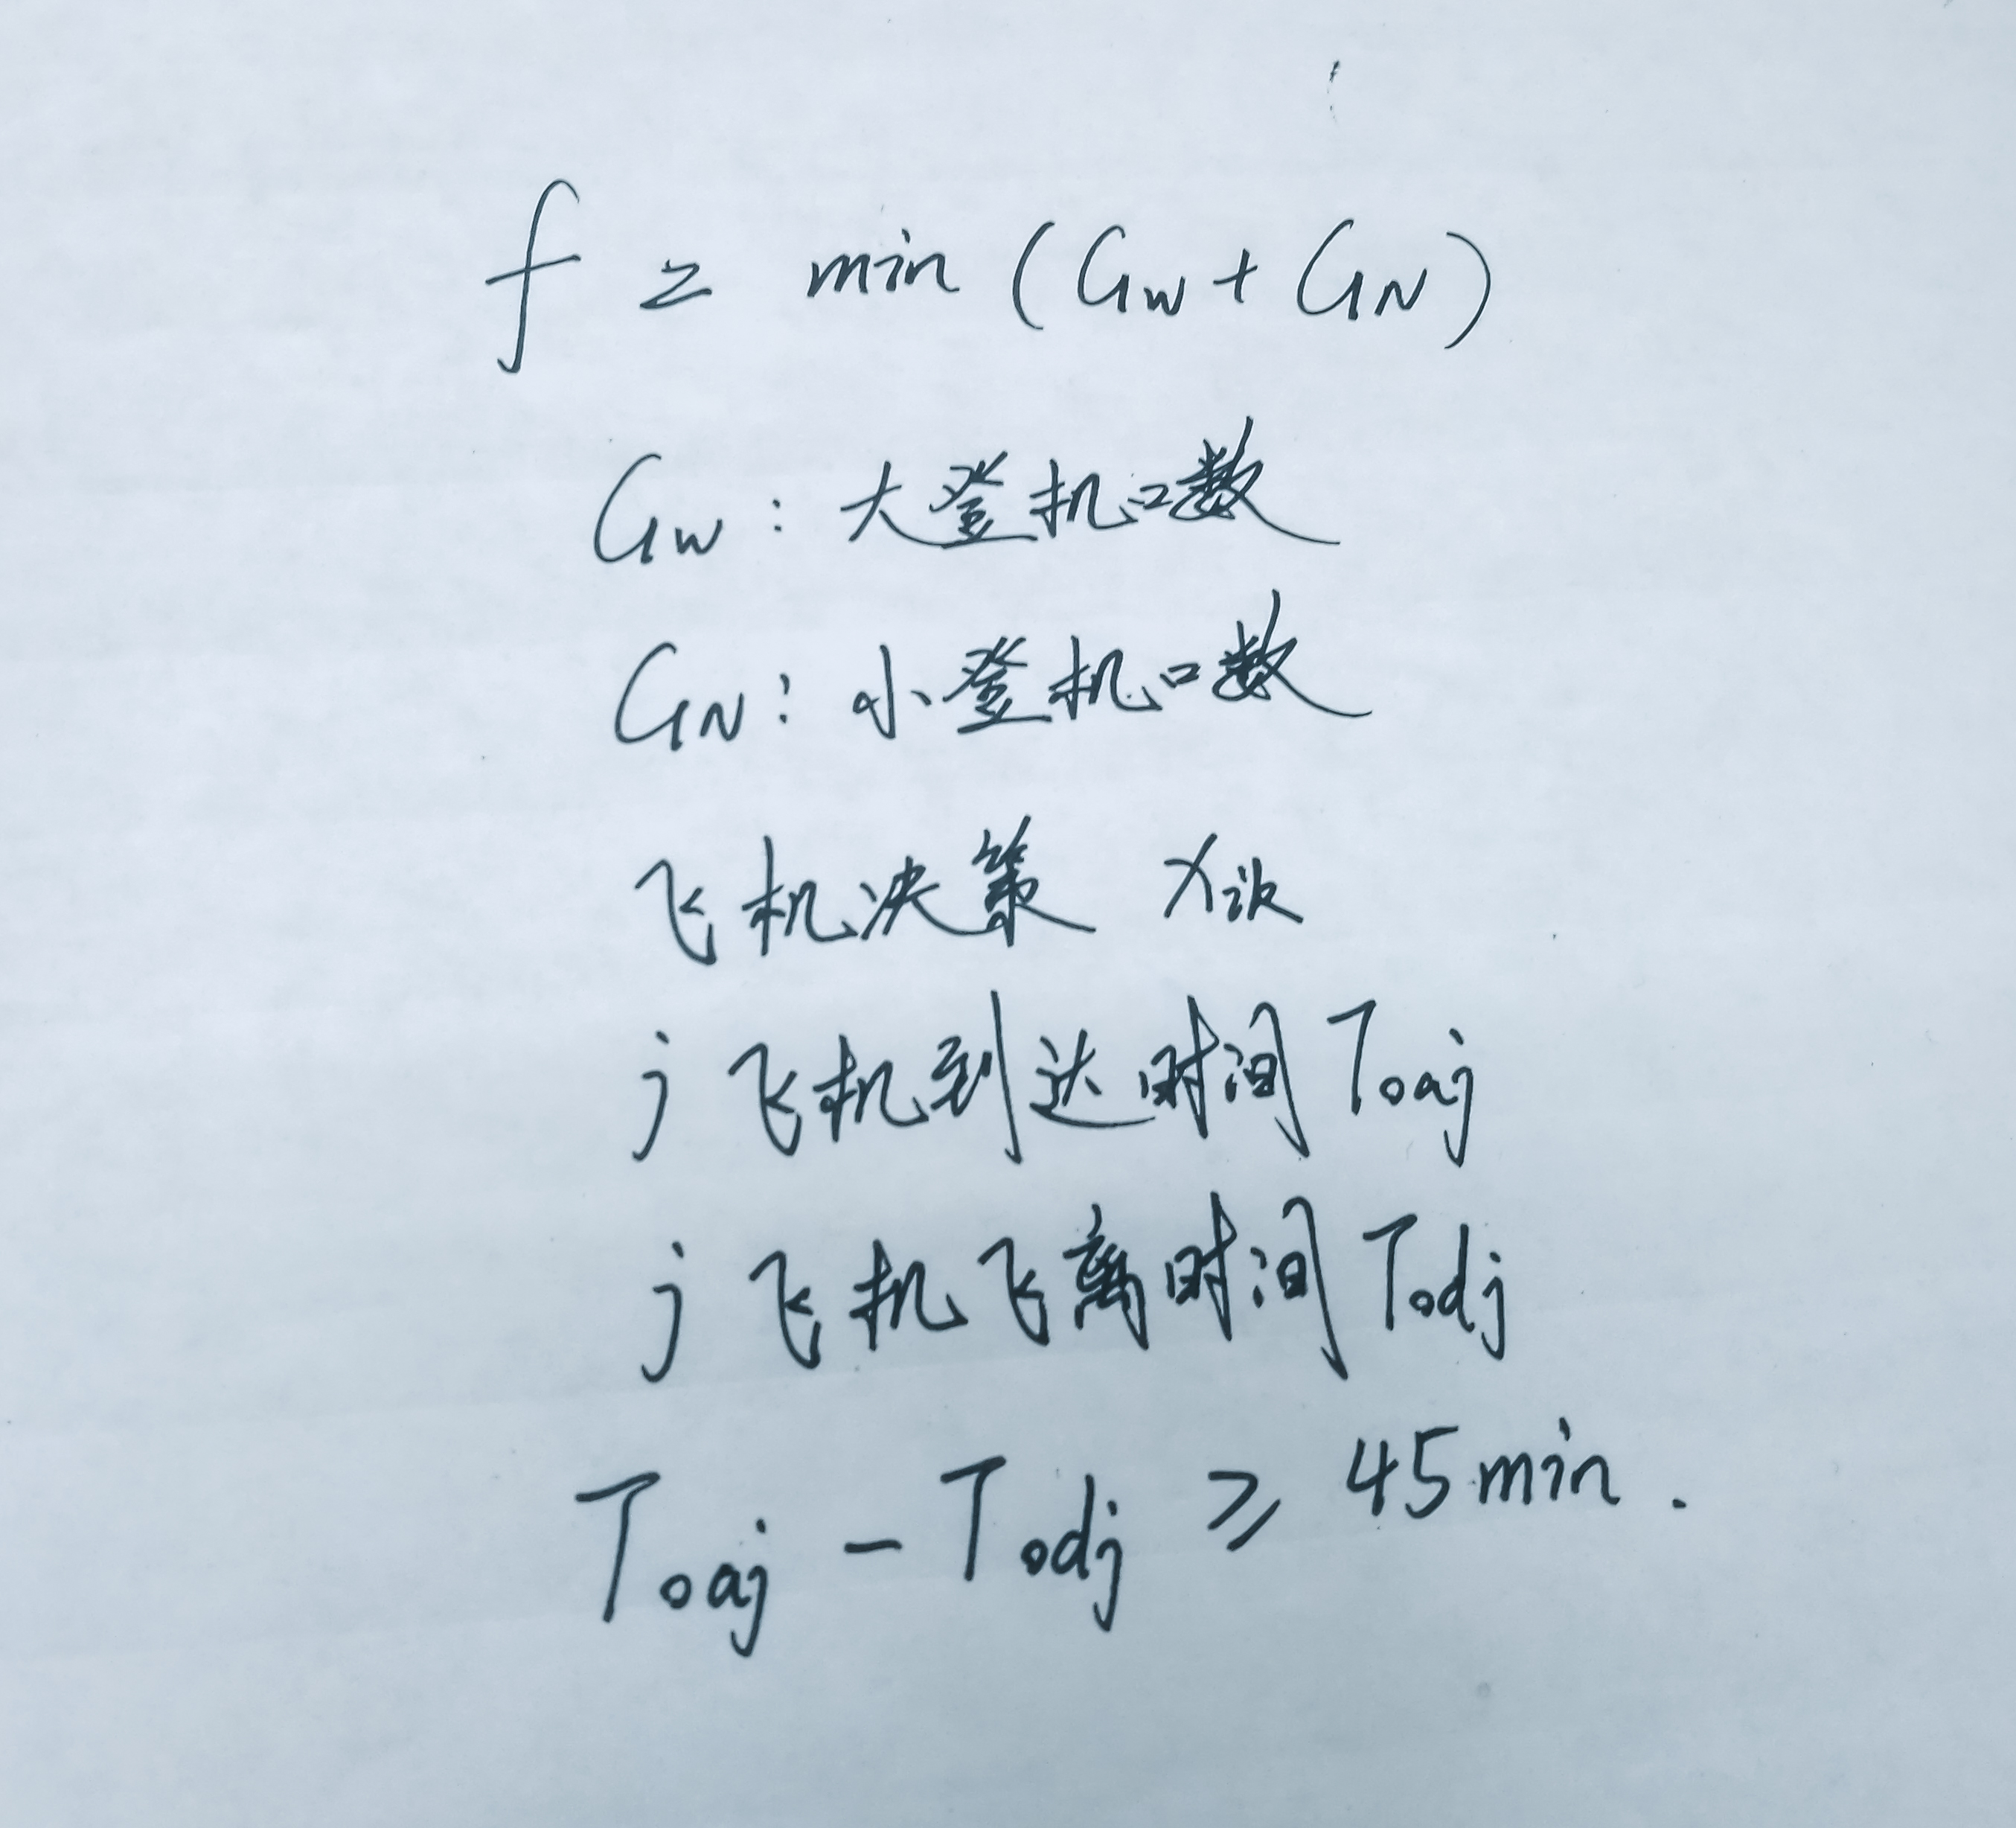 f = min (Gw + GN)
Gw : 大登机口数
GN : 小登机口数
飞机决策 Xijk
j 飞机到达时间 Toaj
j 飞机飞离时间 Todj
Toaj - Todj ≥ 45min .